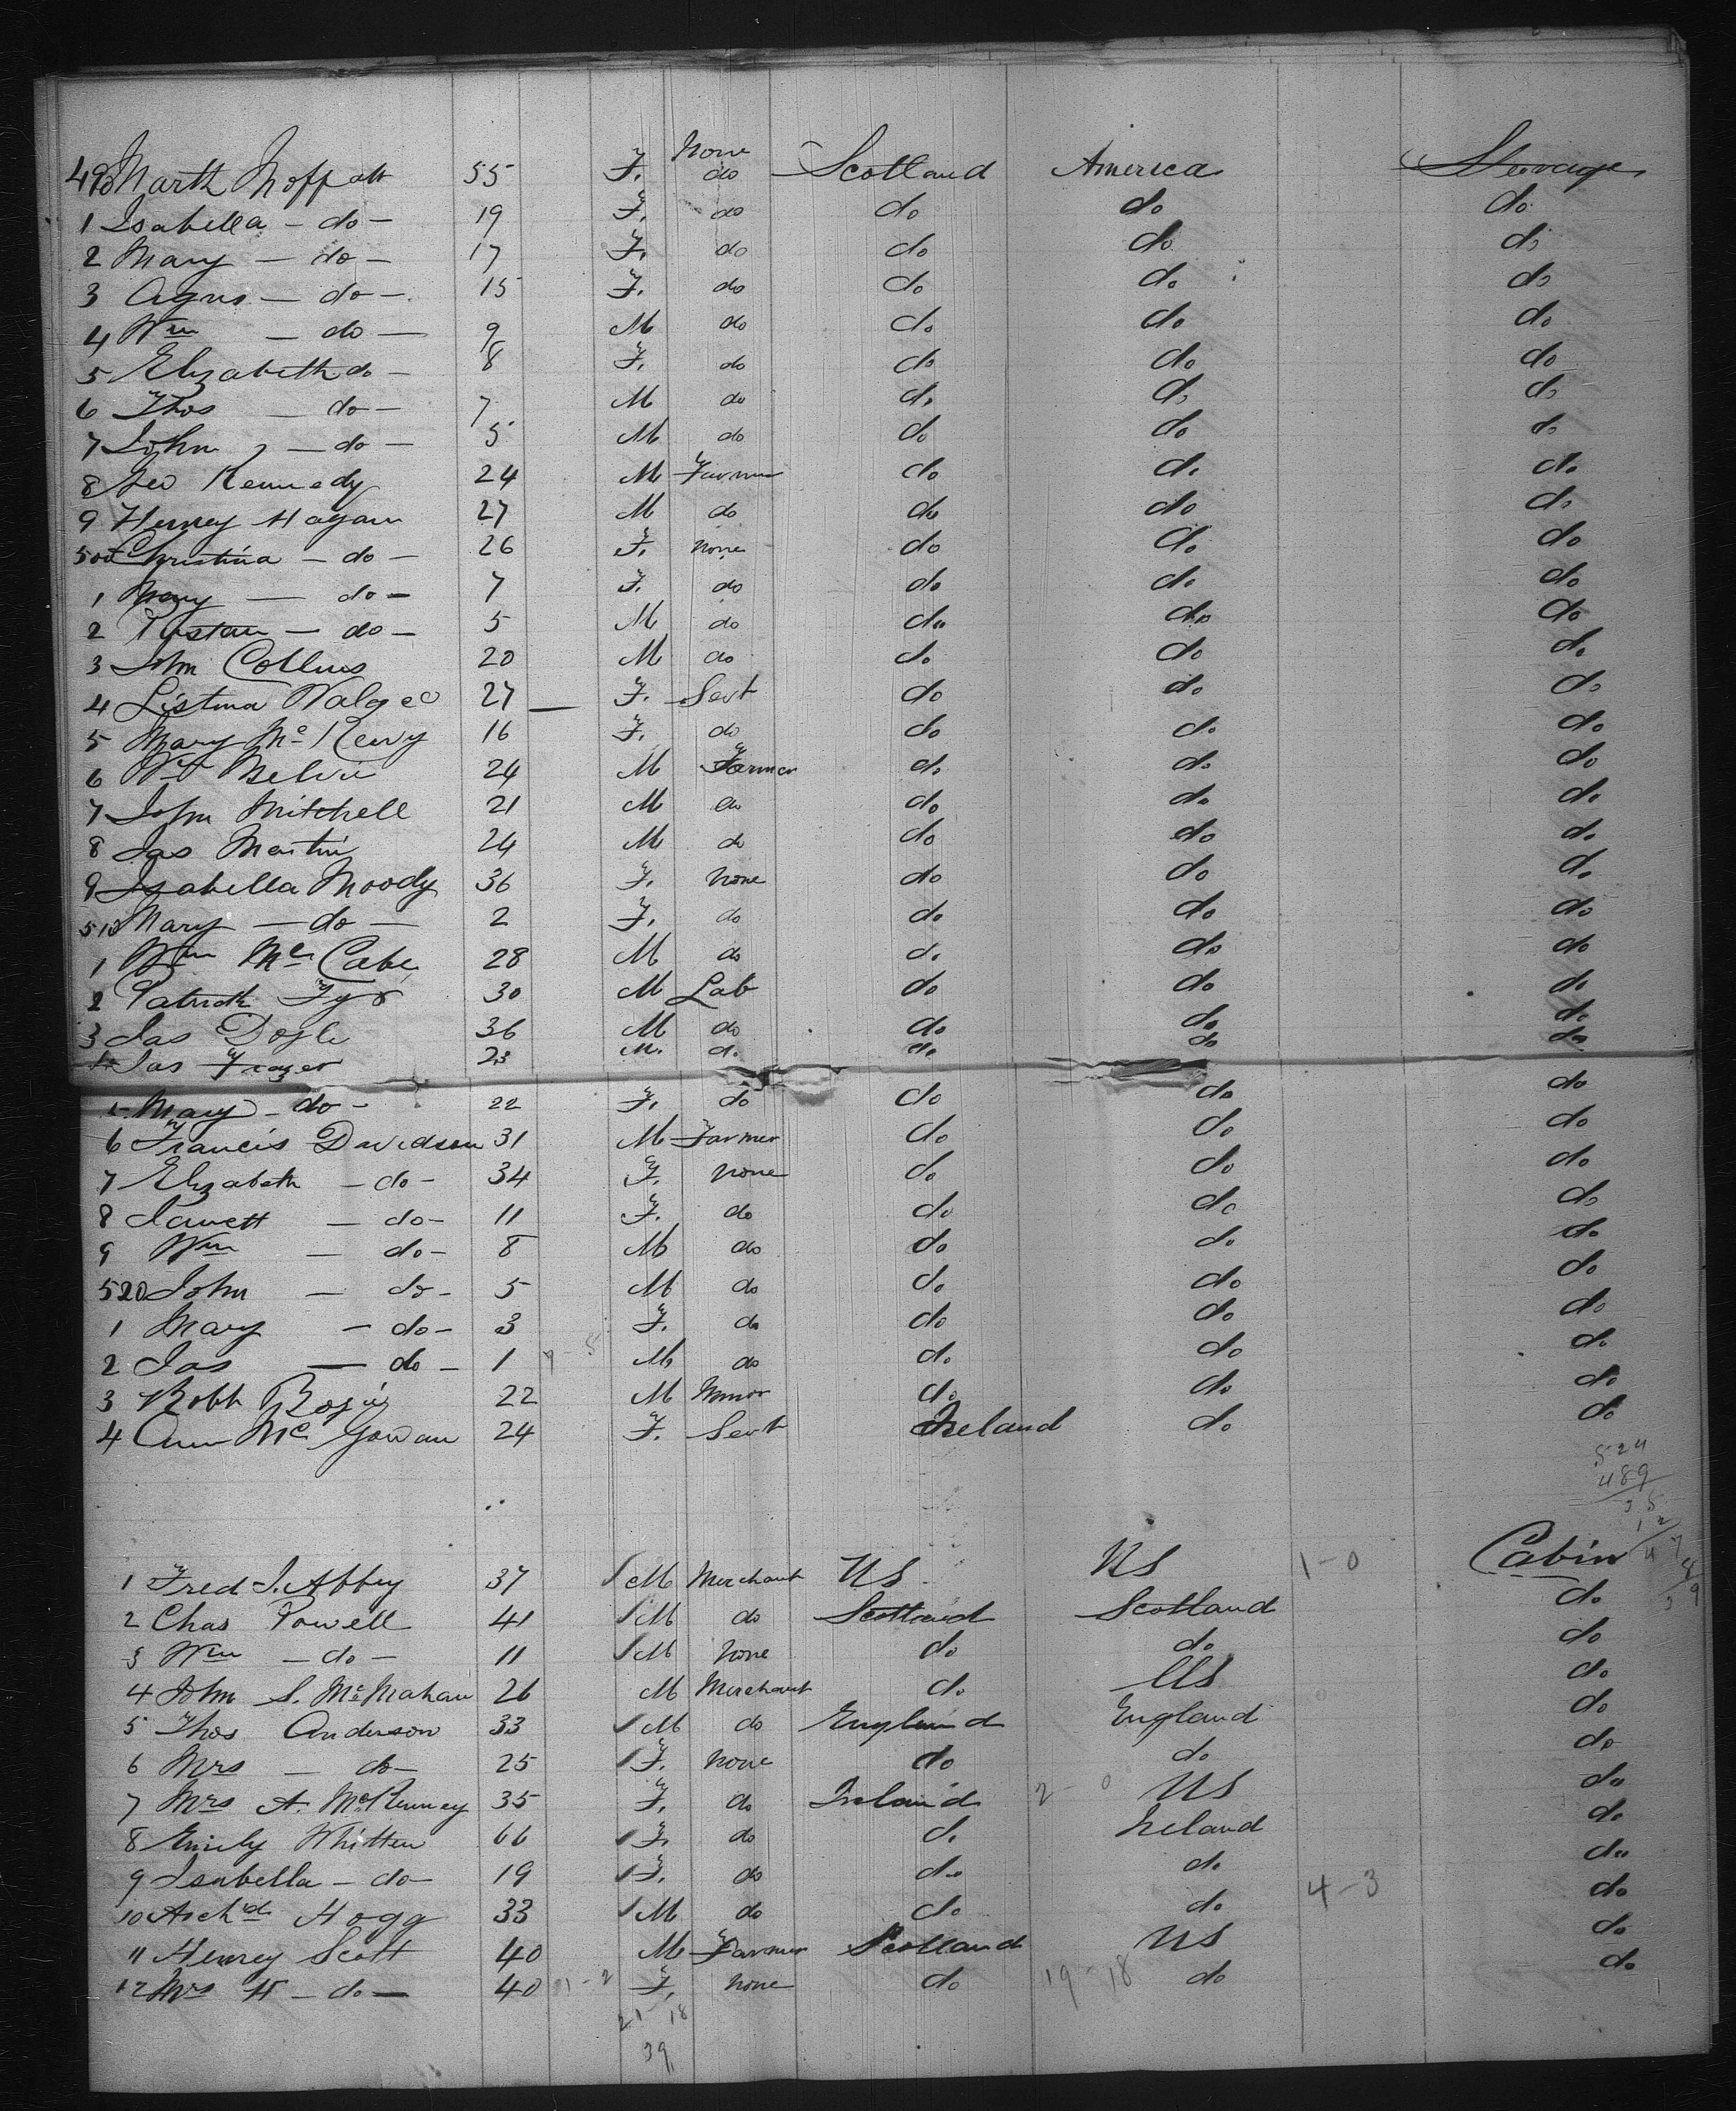 None
490 Marth Moffatt 55 F. do Scotland America Steerage
1 Isabella - do - 19 F. do do do do
2 Mary - do - 17 F. do do do do
3 Agnes - do - 15 F. do do do do
4 Wm - do - 9 M do do do do
5 Elizabeth do - 8 F. do do do do
6 Thos - do - 7 M do do do do
7 John - do - 5 M do do do do
8 Geo Kennedy 24 M Farmer do do do
9 Henrey Hagan 27 M do do do do
500 Christina - do - 26 F. none do do do
1 Mary - do - 7 F. do do do do
2 - do - 5 M do do do do
3 John Collins 20 M do do do do
4 27 F. Sevt do do do
5 Mary Mc 16 F. do do do do
6 Wm 24 M Farmer do do do
7 John Mitchell 21 M do do do do
8 Jas Martin 24 M do do do do
9 Isabella Moody 36 F. none do do do
510 Mary - do - 2 F. do do do do
1 Wm Mc Cabe 28 M do do do do
2 Patrick 30 M Lab do do do
3 Jas 36 M do do do do
4 Jas Frazer 23 M. do do do do
5 Mary - do - 22 F. do do do do
6 Francis Davidson 31 M Farmer do do do
7 Elizabeth - do - 34 F. none do do do
8 Janett - do - 11 F. do do do do
9 Wm - do - 8 M do do do do
520 John - do - 5 M do do do do
1 Mary - do - 3 F. do do do do
2 Jas - do - 1 9-5 M do do do do
3 Robt 22 M do do do
4 Ann Mc Gowan 24 F. Sevt Ireland do do
524
489
35
12
47
1 Fred J. Abbey 37 M Merchant US US 1-0 Cabin
2 Chas Powell 41 M do Scotland Scotland do
3 Wm - do - 11 M none do do do
4 John S. McMahan 26 M Merchant do US do
5 Thos Anderson 33 M do England England do
6 Mrs - do - 25 F. none do do do
7 Mrs A. McKenney 35 F. do Ireland 2-0 US do
8 Emily Whitten 66 F. do do Ireland do
9 Isabella - do - 19 F. do do do do
10 Archd Hogg 33 M do do do 4-3 do
11 Henrey Scott 40 M Farmer Scotland US do
12 Mrs H - do - 40 21-2 F. none do 19-18 do do
21 18
39